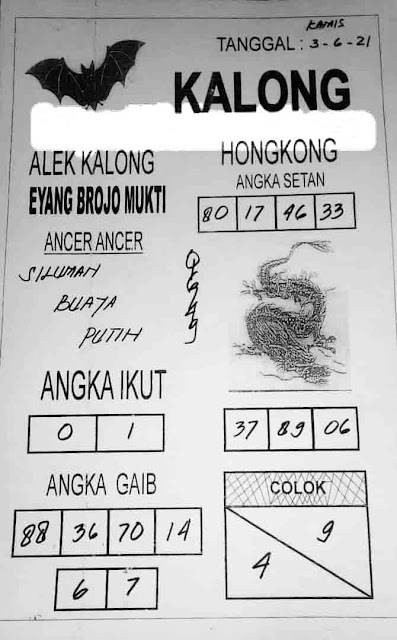 KAMIS
TANGGAL : 3-6-21
KALONG
ALEK KALONG
EYANG BROJO MUKTI
HONGKONG
ANGKA SETAN
80 17 46 33
ANCER ANCER
SILUMAN
BUAYA
PUTIH
ANGKA IKUT
0 1
37 89 06
ANGKA GAIB
88 36 70 14
6 7
COLOK
9
4